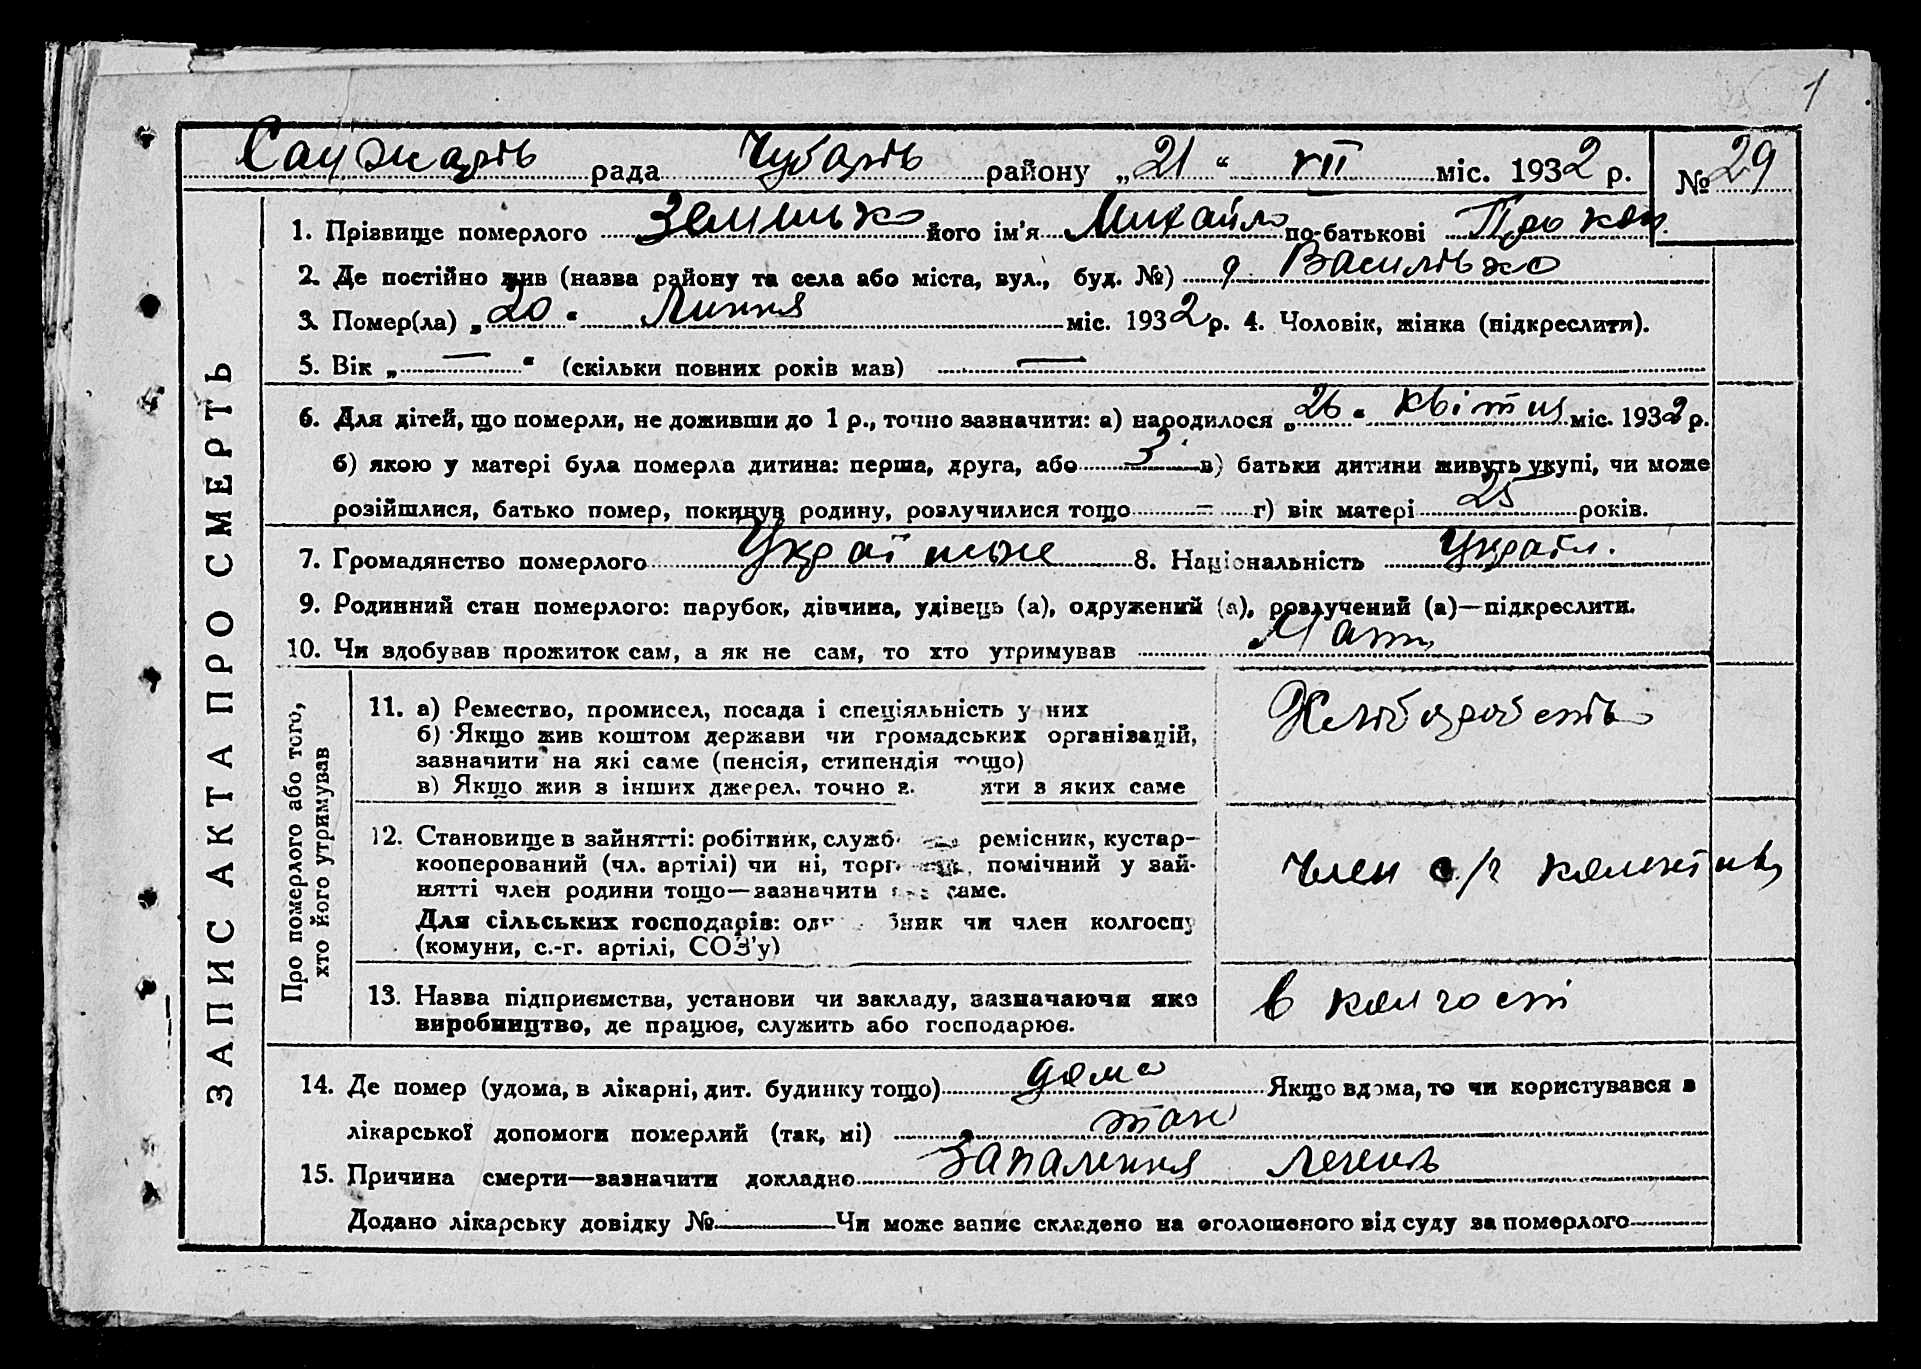 1
Санжарів рада Чубарів району „21“ VII міс. 1932 р. № 29
1. Прізвище померлого його ім'я Михайло по-батькові Прокоп.
2. Де постійно жив (назва району та села або міста, вул., буд. №) Василівка
3. Помер(ла) „20“ Липня міс. 1932 р. 4. Чоловік, жінка (підкреслити).
5. Вік „—“ (скільки повних років мав) —
6. Для дітей, що померли, не доживши до 1 р., точно зазначити: а) народилося „26“ квітня міс. 1932 р.
б) якою у матері була померла дитина: перша, друга, або 3 в) батьки дитини живуть укупі, чи може
розійшлися, батько помер, покинув родину, розлучилися тощо — г) вік матері 25 років.
7. Громадянство померлого 8. Національність Україн.
9. Родинний стан померлого: парубок, дівчина, удівець (а), одружений (а), розлучений (а)—підкреслити.
10. Чи здобував прожиток сам, а як не сам, то хто утримував Мати
ЗАПИС АКТА ПРО СМЕРТЬ
Про померлого або того,
хто його утримував
11. а) Ремество, промисел, посада і спеціяльність у них
б) Якщо жив коштом держави чи громадських організацій,
зазначити на які саме (пенсія, стипендія тощо)
в) Якщо жив з інших джерел, точно з яти з яких саме
Хліборобств
12. Становище в зайнятті: робітник, служб ремісник, кустар-
кооперований (чл. артілі) чи ні, торг помічний у зай-
нятті член родини тощо—зазначити саме.
Для сільських господарів: од ник чи член колгоспу
(комуни, с.-г. артілі, СОЗ'у)
член с/г
13. Назва підприємства, установи чи закладу, зазначаючи яке
виробництво, де працює, служить або господарює.
в колгоспі
14. Де помер (удома, в лікарні, дит. будинку тощо) дома Якщо вдома, то чи користувався з
лікарської допомоги померлий (так, ні) так
15. Причина смерти—зазначити докладно Запалення легень
Додано лікарську довідку № Чи може запис складено на оголошеного від суду за померлого